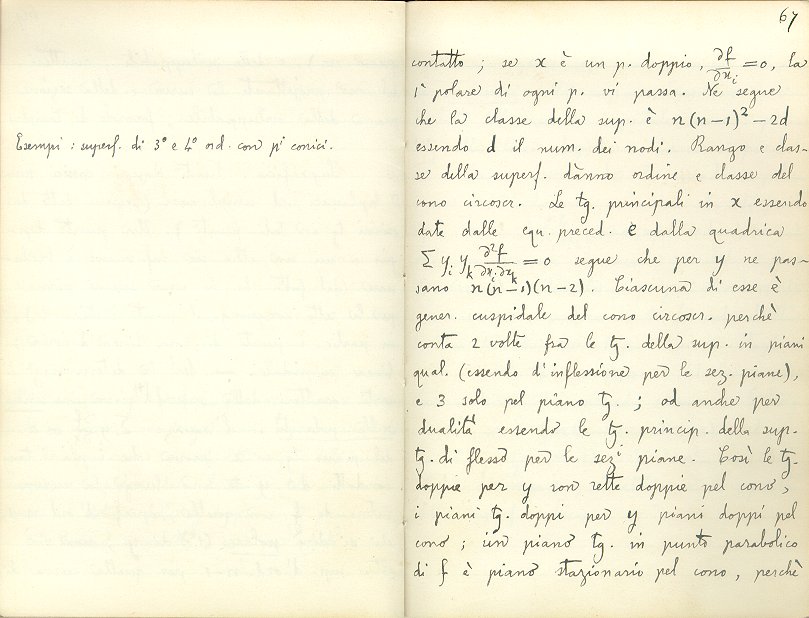 Esempi: superf. di 3° e 4° ord. con pⁱ conici.
67
contatto; se x è un p. doppio, ∂f/∂xᵢ = 0, la
1ª polare di ogni p. vi passa. Ne segue
che la classe della sup. è n(n-1)² - 2d
essendo d il num. dei nodi. Rango e clas-
se della superf. dànno ordine e classe del
cono circoscr. Le tg. principali in x essendo
date dalle equ. preced. e dalla quadrica
Σ yᵢ yₖ ∂²f/∂xᵢ∂xₖ = 0 segue che per y ne pas-
sano n(n-1)(n-2). Ciascuna di esse è
gener. cuspidale del cono circoscr. perchè
conta 2 volte fra le tg. della sup. in piani
qual. (essendo d'inflessione per le sez. piane),
e 3 solo pel piano tg.; od anche per
dualità essendo le tg. princip. della sup.
tg. di flesso per le sezⁱ piane. Così le tg.
doppie per y son rette doppie pel cono,
i piani tg. doppi per y piani doppi pel
cono; un piano tg. in punto parabolico
di f è piano stazionario pel cono, perchè